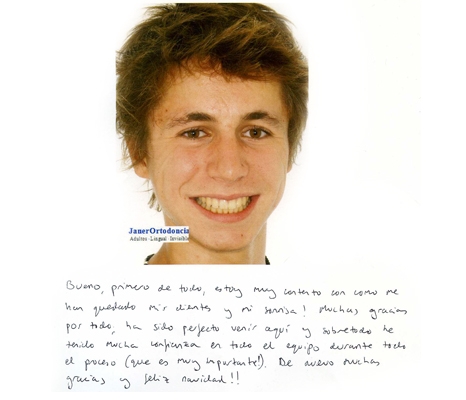 JanerOrtodoncia
Adultos · Lingual · Invisible
Bueno, primero de todo, estoy muy contento con como me
han quedado mis dientes y mi sonrisa! Muchas gracias
por todo, ha sido perfecto venir aquí y sobretodo he
tenido mucha confianza en todo el equipo durante todo
el proceso (que es muy importante!). De nuevo muchas
gracias y feliz navidad!!